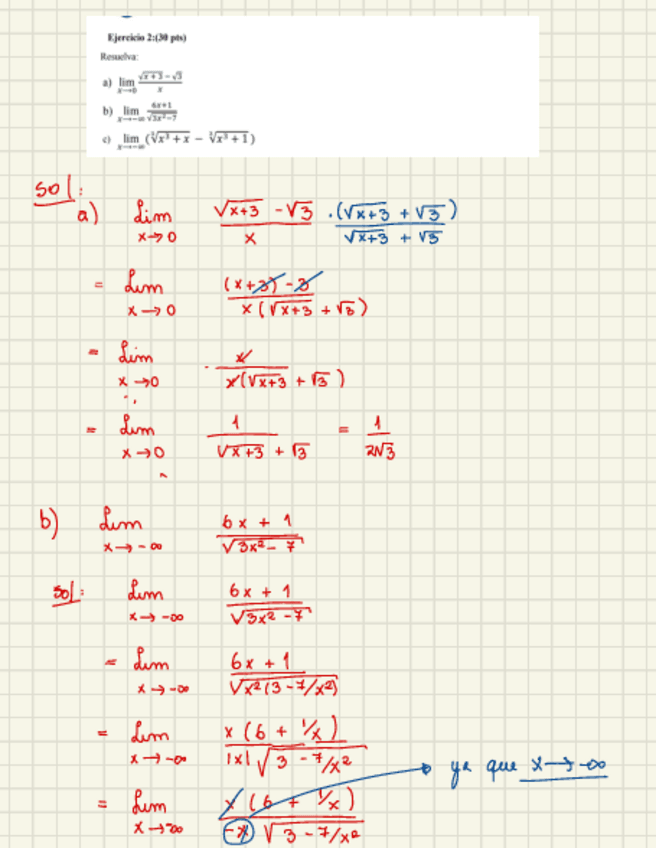 Ejercicio 2:(30 pts)
Resuelva:
a) lim x→0 (√(x+3) − √3)/x
b) lim x→−∞ (6x+1)/√(3x²−7)
c) lim x→−∞ (∛(x³ + x) − ∛(x³ + 1))
Sol:
a) Lim x→0 (√(x+3) − √3)/x · (√(x+3) + √3)/(√(x+3) + √3)
= Lim x→0 ((x+3) − 3)/(x(√(x+3) + √3))
= Lim x→0 x/(x(√(x+3) + √3))
= Lim x→0 1/(√(x+3) + √3) = 1/(2√3)
b) Lim x→−∞ (6x + 1)/√(3x² − 7)
Sol: Lim x→−∞ (6x + 1)/√(3x² − 7)
= Lim x→−∞ (6x + 1)/√(x²(3 − 7/x²))
= Lim x→−∞ x(6 + 1/x)/(|x|√(3 − 7/x²))
ya que x→−∞
= Lim x→−∞ x(6 + 1/x)/(−x√(3 − 7/x²))